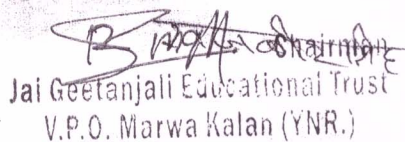 Chairman
Jai Geetanjali Educational Trust
V.P.O. Marwa Kalan (YNR.)